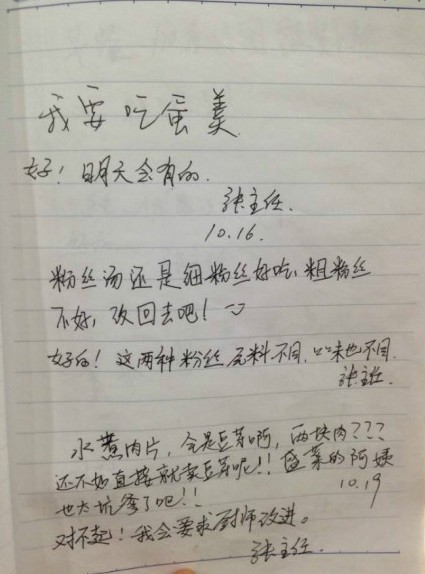 我要吃蛋羹
好！明天会有的.
张主任.
10.16.
粉丝汤还是细粉丝好吃，粗粉丝
不好，改回去吧！
好的！这两种粉丝原料不同，口味也不同.
张主任.
水煮肉片，全是豆芽啊，两块肉？？？
还不如直接就卖豆芽呢！！盛菜的阿姨
也太坑爹了吧！！
10.19
对不起！我会要求厨师改进。
张主任.